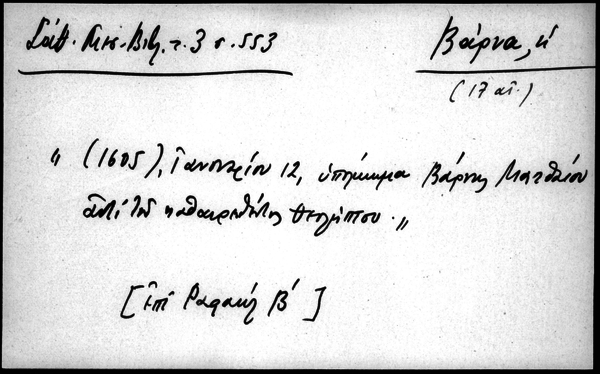 Σάθ. Μεσ. Βιβ. τ. 3 σ. 553
Βάρνα, ἡ
(17 αἰ.)
" (1605), Ἰανουαρίου 12, ὑπόμνημα Βάρνης Ματθαίου
ἀντὶ τοῦ καθαιρεθέντος Θεολήπτου. "
[ἐπὶ Ραφαὴλ Β´]